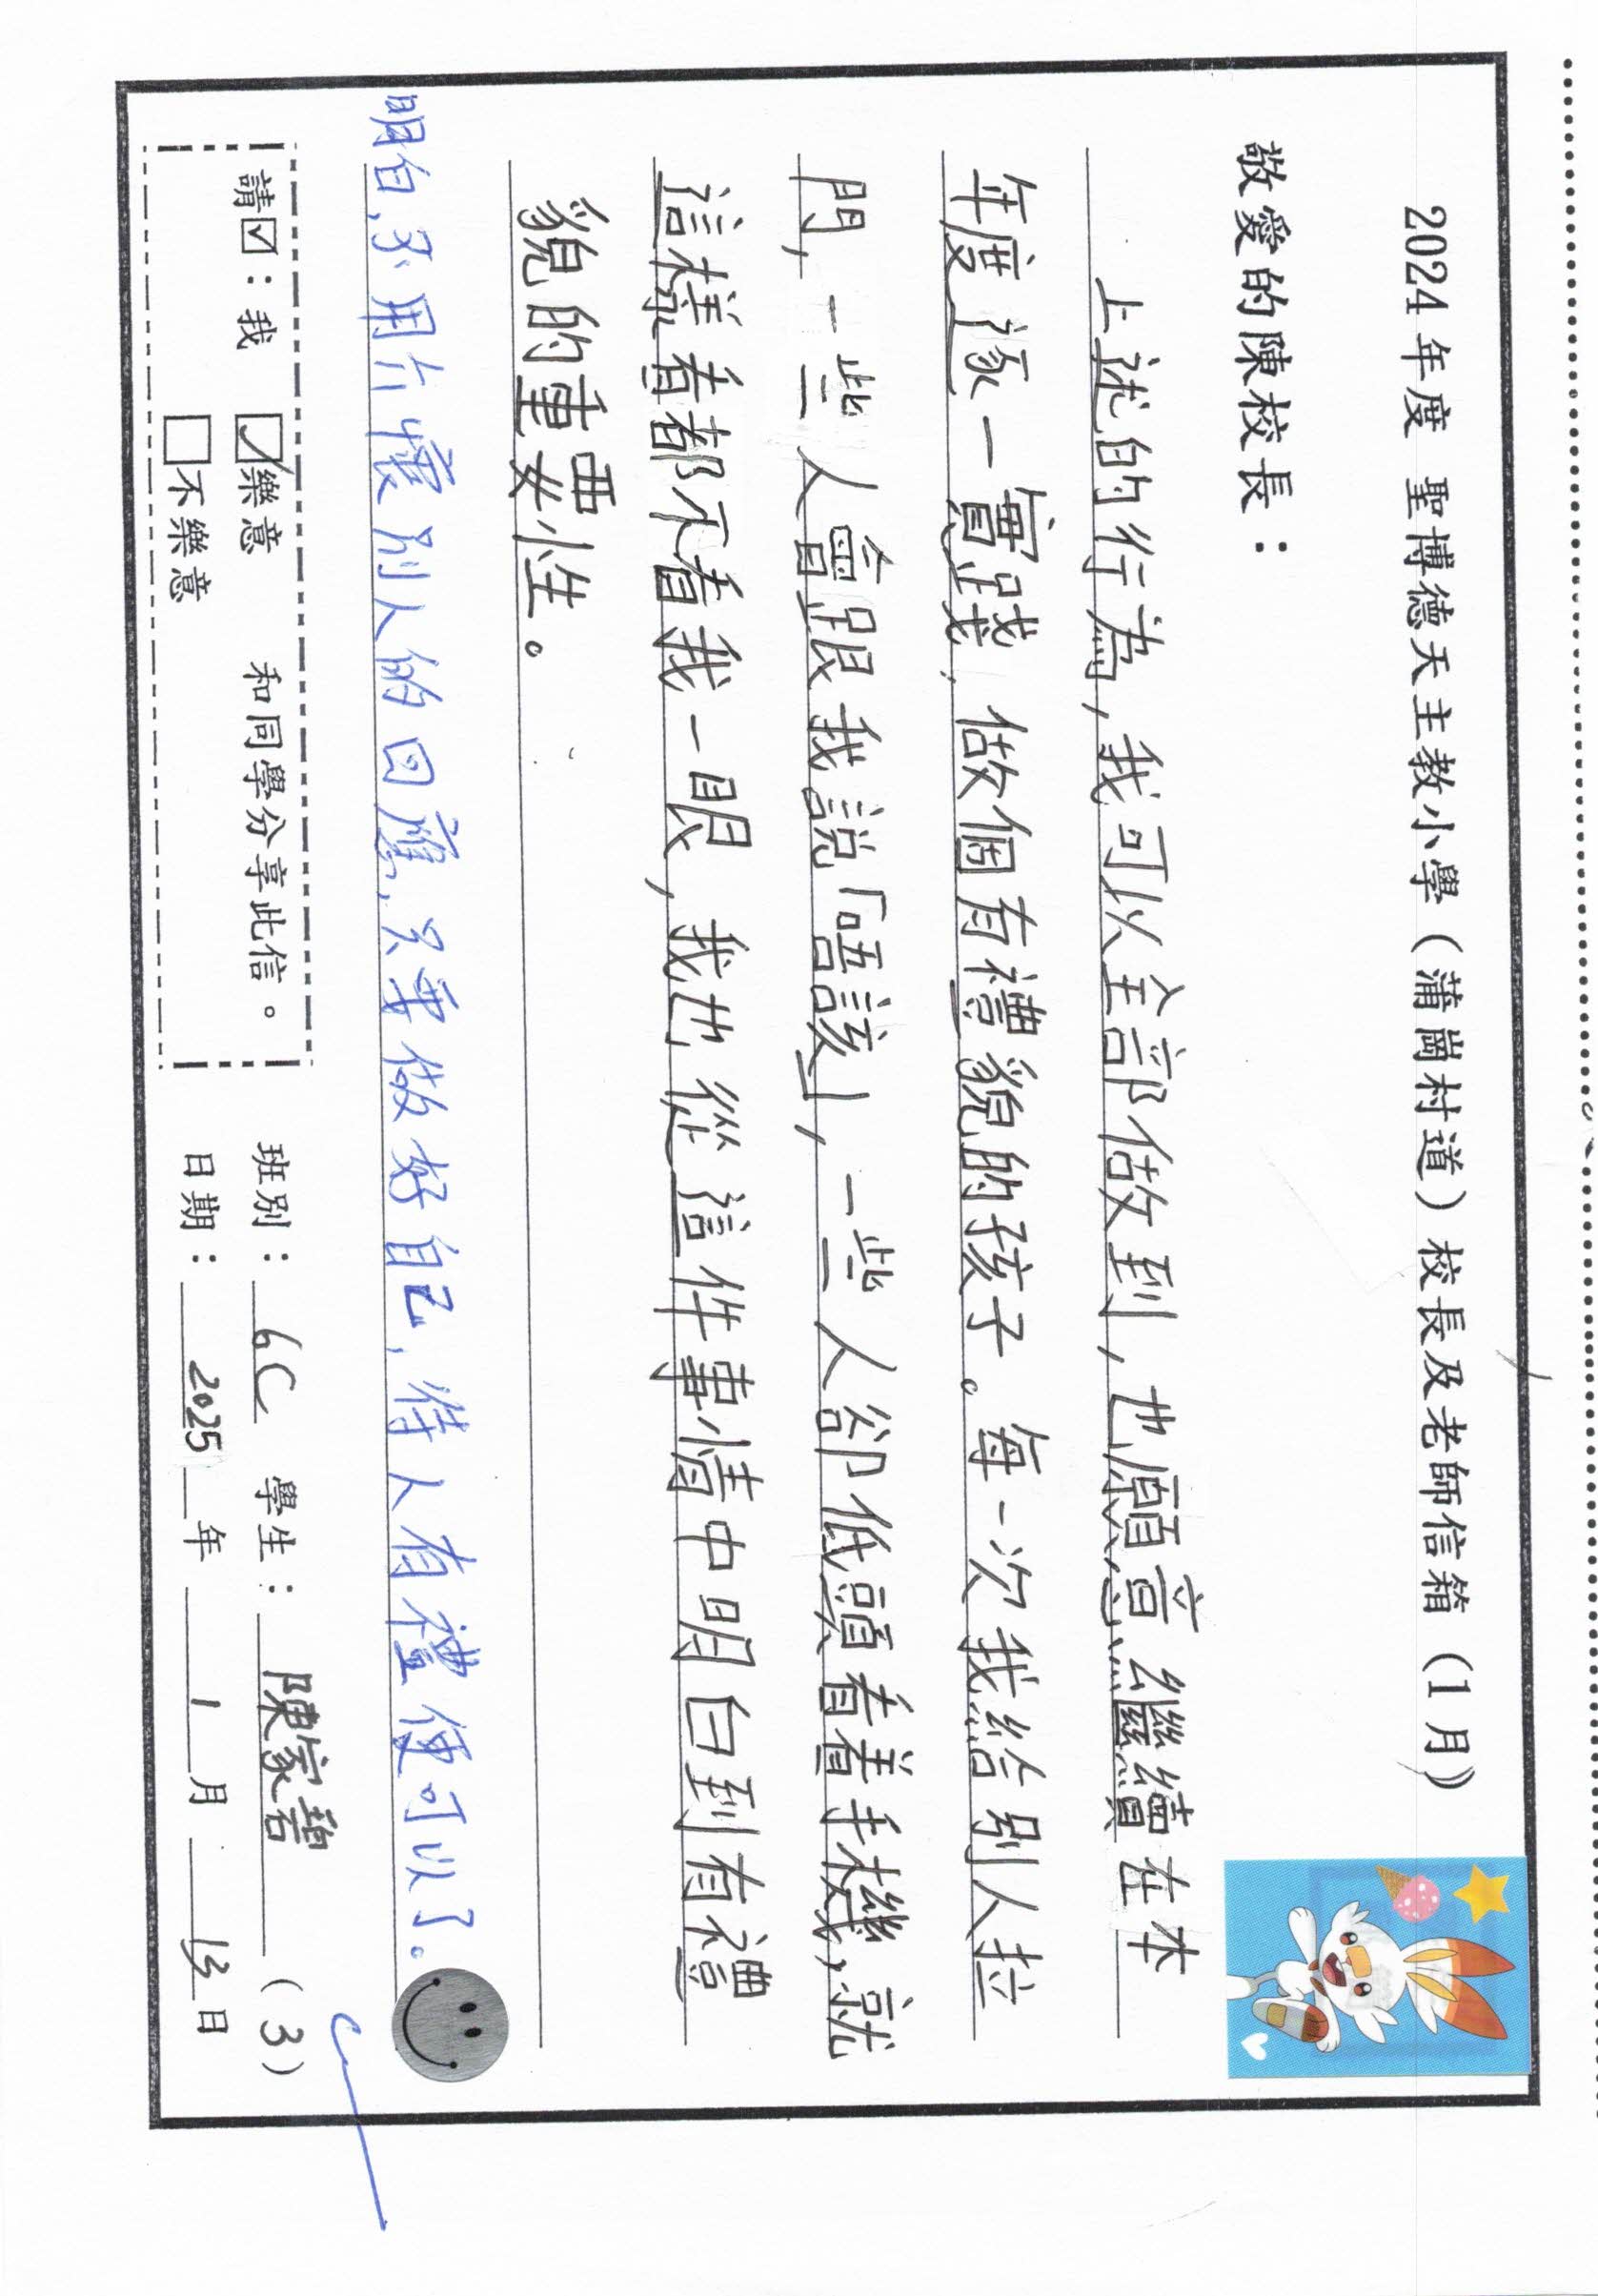 2024 年度 聖博德天主教小學（蒲崗村道）校長及老師信箱（1 月）
敬愛的陳校長：
上述的行為，我可以全部做到，也願意繼續在本
年度逐一實踐，做個有禮貌的孩子。每一次我給別人拉
門，一些人會跟我說「唔該」，一些人卻低頭看着手機，就
這樣看都不看我一眼，我也從這件事情中明白到有禮
貌的重要性。
明白，不用介懷別人的回應，只要做好自己，待人有禮便可以了。
請☑：我 ☑樂意 和同學分享此信。
□不樂意
班別：6C 學生：陳家碧（3）
日期：2025年1月13日